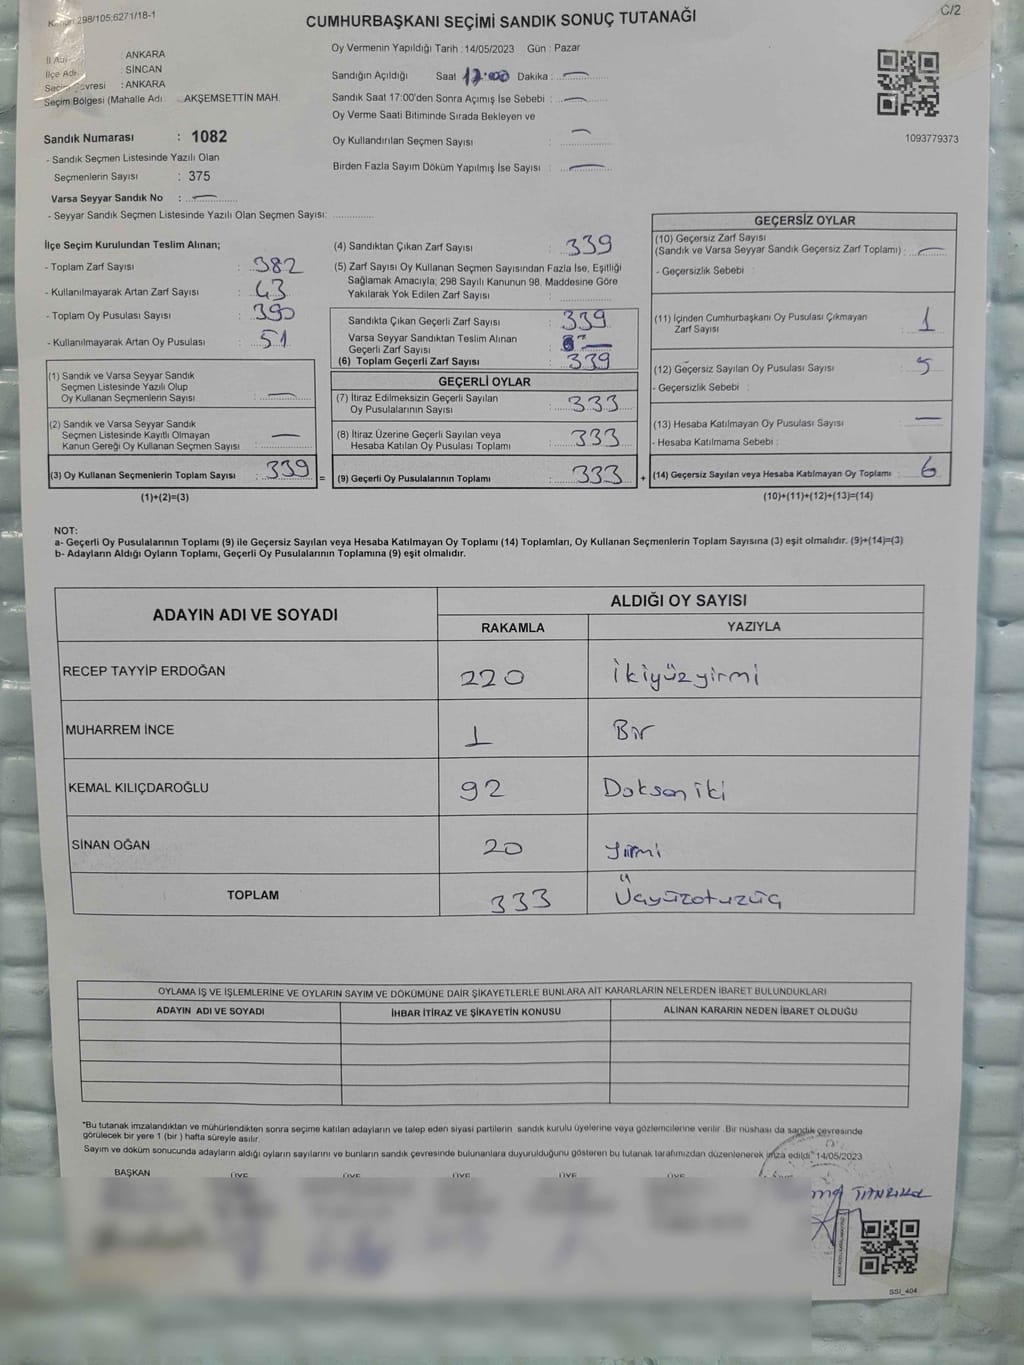 Kanun 298/105;6271/18-1
C/2
CUMHURBAŞKANI SEÇİMİ SANDIK SONUÇ TUTANAĞI
İl Adı : ANKARA
İlçe Adı : SİNCAN
Seçim Çevresi : ANKARA
Seçim Bölgesi (Mahalle Adı AKŞEMSETTİN MAH.
Oy Vermenin Yapıldığı Tarih : 14/05/2023 Gün : Pazar
Sandığın Açıldığı Saat 17:00 Dakika : —
Sandık Saat 17:00'den Sonra Açımış İse Sebebi : —
Oy Verme Saati Bitiminde Sırada Bekleyen ve
Oy Kullandırılan Seçmen Sayısı : —
Birden Fazla Sayım Döküm Yapılmış İse Sayısı : —
1093779373
Sandık Numarası : 1082
- Sandık Seçmen Listesinde Yazılı Olan
Seçmenlerin Sayısı : 375
Varsa Seyyar Sandık No : —
- Seyyar Sandık Seçmen Listesinde Yazılı Olan Seçmen Sayısı:
İlçe Seçim Kurulundan Teslim Alınan;
- Toplam Zarf Sayısı : 382
- Kullanılmayarak Artan Zarf Sayısı : 43
- Toplam Oy Pusulası Sayısı : 390
- Kullanılmayarak Artan Oy Pusulası : 51
(1) Sandık ve Varsa Seyyar Sandık
Seçmen Listesinde Yazılı Olup
Oy Kullanan Seçmenlerin Sayısı : —
(2) Sandık ve Varsa Seyyar Sandık
Seçmen Listesinde Kayıtlı Olmayan
Kanun Gereği Oy Kullanan Seçmen Sayısı : —
(3) Oy Kullanan Seçmenlerin Toplam Sayısı : 339
(1)+(2)=(3)
(4) Sandıktan Çıkan Zarf Sayısı : 339
(5) Zarf Sayısı Oy Kullanan Seçmen Sayısından Fazla İse, Eşitliği
Sağlamak Amacıyla, 298 Sayılı Kanunun 98. Maddesine Göre
Yakılarak Yok Edilen Zarf Sayısı :
Sandıkta Çıkan Geçerli Zarf Sayısı : 339
Varsa Seyyar Sandıktan Teslim Alınan
Geçerli Zarf Sayısı : —
(6) Toplam Geçerli Zarf Sayısı : 339
GEÇERLİ OYLAR
(7) İtiraz Edilmeksizin Geçerli Sayılan
Oy Pusulalarının Sayısı : 333
(8) İtiraz Üzerine Geçerli Sayılan veya
Hesaba Katılan Oy Pusulası Toplamı : 333
= (9) Geçerli Oy Pusulalarının Toplamı : 333
GEÇERSİZ OYLAR
(10) Geçersiz Zarf Sayısı
(Sandık ve Varsa Seyyar Sandık Geçersiz Zarf Toplamı) : —
- Geçersizlik Sebebi :
(11) İçinden Cumhurbaşkanı Oy Pusulası Çıkmayan
Zarf Sayısı : 1
(12) Geçersiz Sayılan Oy Pusulası Sayısı : 5
- Geçersizlik Sebebi :
(13) Hesaba Katılmayan Oy Pusulası Sayısı : —
- Hesaba Katılmama Sebebi :
+ (14) Geçersiz Sayılan veya Hesaba Katılmayan Oy Toplamı : 6
(10)+(11)+(12)+(13)=(14)
NOT:
a- Geçerli Oy Pusulalarının Toplamı (9) ile Geçersiz Sayılan veya Hesaba Katılmayan Oy Toplamı (14) Toplamları, Oy Kullanan Seçmenlerin Toplam Sayısına (3) eşit olmalıdır. (9)+(14)=(3)
b- Adayların Aldığı Oyların Toplamı, Geçerli Oy Pusulalarının Toplamına (9) eşit olmalıdır.
ADAYIN ADI VE SOYADI
ALDIĞI OY SAYISI
RAKAMLA YAZIYLA
RECEP TAYYİP ERDOĞAN 220 İkiyüzyirmi
MUHARREM İNCE 1 Bir
KEMAL KILIÇDAROĞLU 92 Doksan iki
SİNAN OĞAN 20 yirmi
TOPLAM 333 Üçyüzotuzüç
OYLAMA İŞ VE İŞLEMLERİNE VE OYLARIN SAYIM VE DÖKÜMÜNE DAİR ŞİKAYETLERLE BUNLARA AİT KARARLARIN NELERDEN İBARET BULUNDUKLARI
ADAYIN ADI VE SOYADI İHBAR İTİRAZ VE ŞİKAYETİN KONUSU ALINAN KARARIN NEDEN İBARET OLDUĞU
"Bu tutanak imzalandıktan ve mühürlendikten sonra seçime katılan adayların ve talep eden siyasi partilerin sandık kurulu üyelerine veya gözlemcilerine verilir. Bir nüshası da sandık çevresinde
görülecek bir yere 1 (bir ) hafta süreyle asılır.
Sayım ve döküm sonucunda adayların aldığı oyların sayılarını ve bunların sandık çevresinde bulunanlara duyurulduğunu gösteren bu tutanak tarafımızdan düzenlenerek imza edildi" 14/05/2023
BAŞKAN ÜYE ÜYE ÜYE ÜYE
SSİ_404